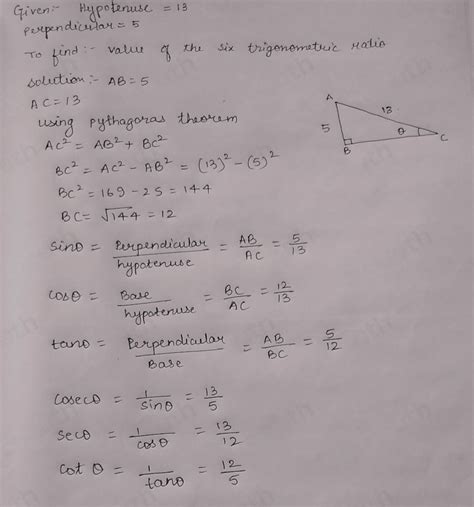 Given:- Hypotenuse = 13
Perpendicular = 5
To find:- value of the six trigonometric ratio
solution:- AB = 5
AC = 13
using pythagoras theorem
AC² = AB² + BC²
BC² = AC² - AB² = (13)² - (5)²
BC² = 169 - 25 = 144
BC = √144 = 12
A
13
5
θ
B
C
sinθ = Perpendicular/hypotenuse = AB/AC = 5/13
cosθ = Base/hypotenuse = BC/AC = 12/13
tanθ = Perpendicular/Base = AB/BC = 5/12
cosecθ = 1/sinθ = 13/5
secθ = 1/cosθ = 13/12
cot θ = 1/tanθ = 12/5